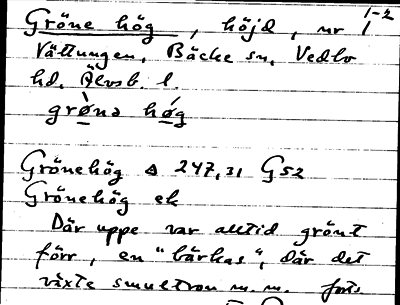 1-2
Gröne hög, höjd, nr 1
Vättungen, Bäcke sn, Vedbo
hd. Älvsb. l.
grø̀nə hǿg
Grönehög △ 247,31 G52
Grönehög ek
Där uppe var alltid grönt
förr, en "bärkas", där det
växte smultron m.m. forts.